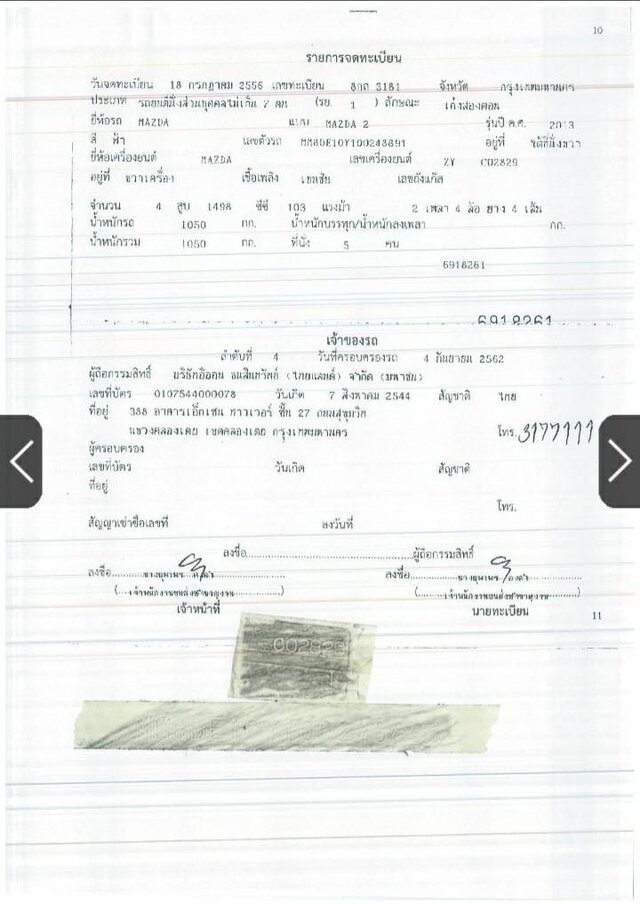 10
รายการจดทะเบียน
วันจดทะเบียน 18 กรกฎาคม 2556 เลขทะเบียน 3181 จังหวัด กรุงเทพมหานคร
ประเภท รถยนต์นั่งส่วนบุคคลไม่เกิน 7 คน (รย. 1 ) ลักษณะ เก๋งสองตอน
ยี่ห้อรถ MAZDA แบบ MAZDA 2 รุ่นปี ค.ศ. 2013
สี ฟ้า เลขตัวรถ อยู่ที่ ใต้ที่นั่งขวา
ยี่ห้อเครื่องยนต์ MAZDA เลขเครื่องยนต์ ZY C02829
อยู่ที่ ขวาเครื่อง เชื้อเพลิง เบนซิน เลขถังแก๊ส
จำนวน 4 สูบ 1498 ซีซี 103 แรงม้า 2 เพลา 4 ล้อ ยาง 4 เส้น
น้ำหนักรถ 1050 กก. น้ำหนักบรรทุก/น้ำหนักลงเพลา กก.
น้ำหนักรวม 1050 กก. ที่นั่ง 5 คน
6918261
6918261
เจ้าของรถ
ลำดับที่ 4 วันที่ครอบครองรถ 4 กันยายน 2562
ผู้ถือกรรมสิทธิ์ บริษัทอิออน ธนสินทรัพย์ (ไทยแลนด์) จำกัด (มหาชน)
เลขที่บัตร 0107544000078 วันเกิด 7 สิงหาคม 2544 สัญชาติ ไทย
ที่อยู่ 388 อาคารเอ็กเชน ทาวเวอร์ ชั้น 27 ถนนสุขุมวิท
แขวงคลองเตย เขตคลองเตย กรุงเทพมหานคร โทร. 3177111
ผู้ครอบครอง
เลขที่บัตร วันเกิด สัญชาติ
ที่อยู่
โทร.
สัญญาเช่าซื้อเลขที่ ลงวันที่
ลงชื่อ ผู้ถือกรรมสิทธิ์
ลงชื่อ ลงชื่อ
เจ้าหน้าที่ นายทะเบียน
11